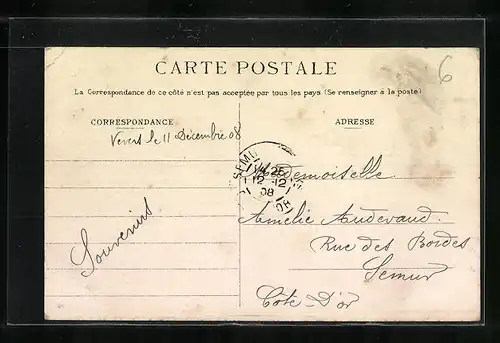 6
CARTE POSTALE
La Correspondance de ce côté n'est pas acceptée par tous les pays (Se renseigner à la poste)
CORRESPONDANCE
ADRESSE
le 11 Décembre 08
SEMU
25
12-12
08
Mademoiselle
Amélie Audevaud.
Souvenirs
Rue des Bordes
Semur
Côte-D'or